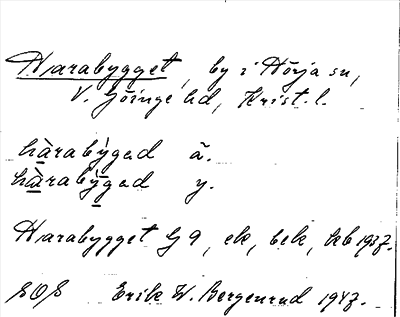 Harabygget, by i Hörja sn,
V. Göinge hd, Krist. l.
hàrabỳgəd ä.
hàrabỳgəd y.
Harabygget G 9, ek, bek, hkb 1937.
SOS Erik W. Bergenrud 1947.